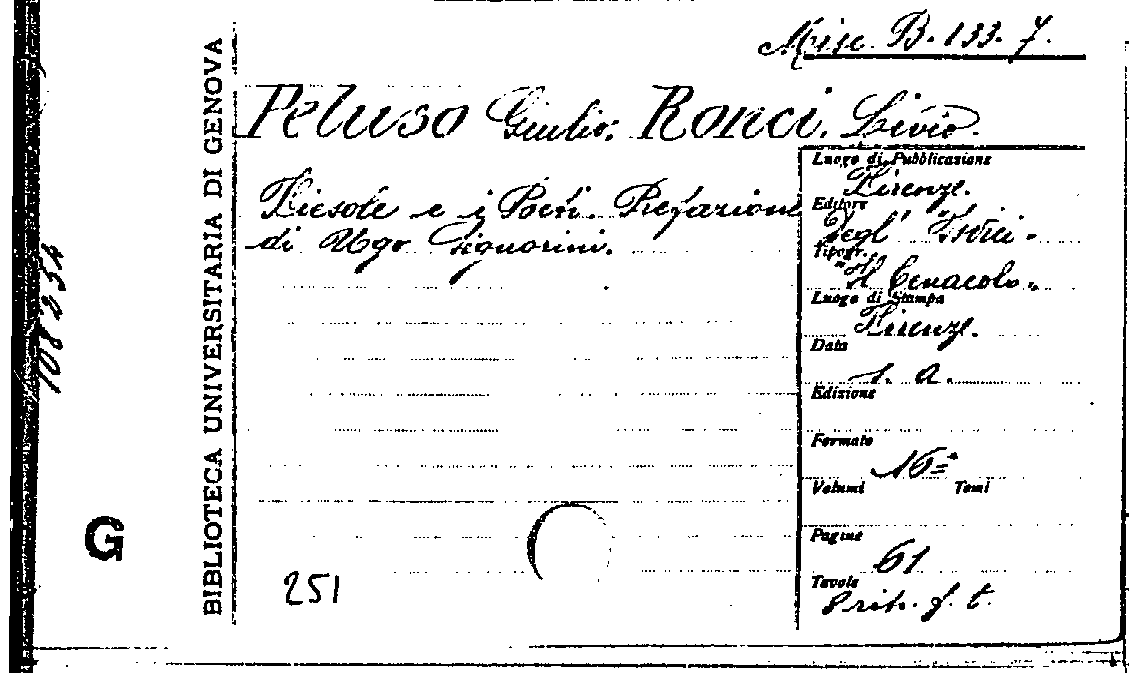 Misc. B. 133. 7.
Peluso Giulio; Ronci, Livio.
Fiesole e i Poeti. Prefazione
di Ugo Signorini.
Luogo di Pubblicazione
Firenze.
Editore
Degl' "Istrici"
Tipogr.
"Il Cenacolo"
Luogo di Stampa
Firenze.
Data
s. a.
Edizione
Formato
16°
Volumi Tomi
Pagine
61
Tavole
f. t.
251
BIBLIOTECA UNIVERSITARIA DI GENOVA
G